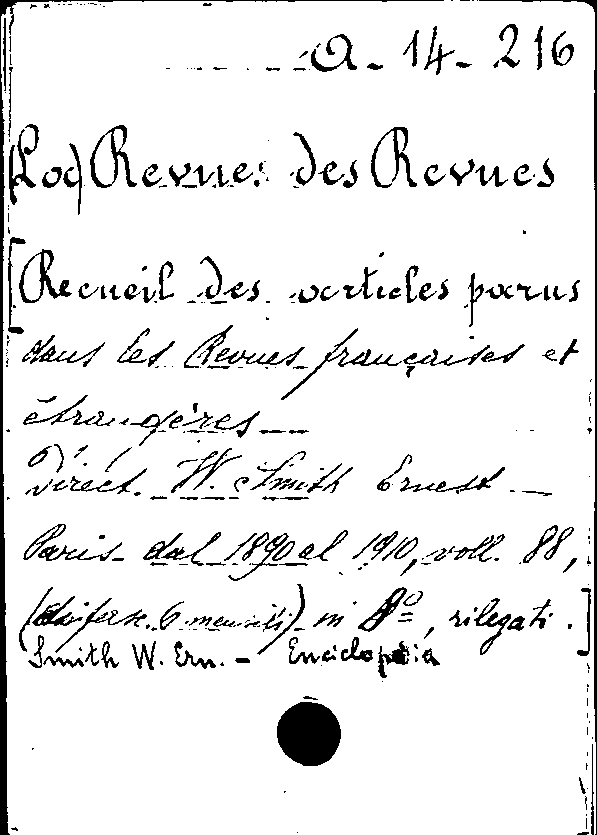 A - 14 - 216
(Loc) Revue des Revues
[Recueil des articles parus
dans les Revues françaises et
étrangères —
Direct. W. Smith Ernest —
Paris dal 1890 al 1910, voll. 88,
6 mensili) in 8º, rilegati.]
Smith W. Ern. - Enciclopedia